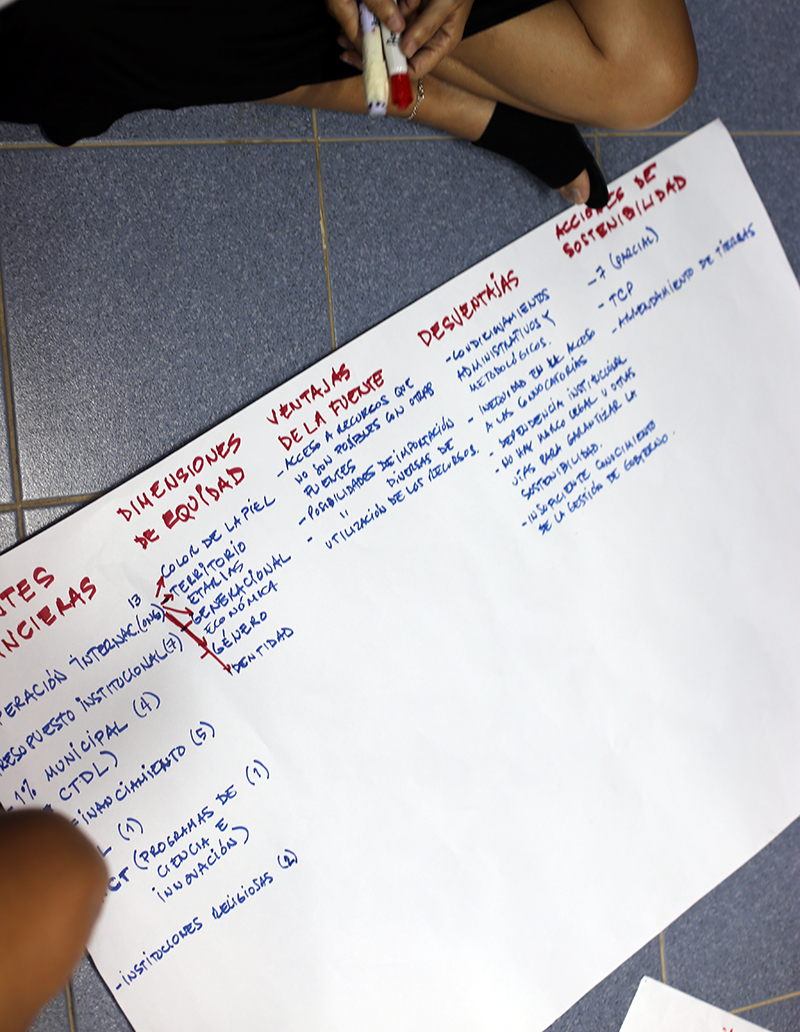 NTES
NCIERAS
PERACIÓN INTERNAC(ONG) 13
RESUPUESTO INSTITUCIONAL (7)
- 1% MUNICIPAL (4)
CTDL)
FINANCIAMIENTO (5)
L (1)
CT (PROGRAMAS DE (1)
CIENCIA E
INNOVACIÓN)
- INSTITUCIONES RELIGIOSAS (2)
DIMENSIONES
DE EQUIDAD
COLOR DE LA PIEL
TERRITORIO
ETARIAS
GENERACIONAL
ECONÓMICA
GÉNERO
IDENTIDAD
VENTAJAS
DE LA FUENTE
- ACCESO A RECURSOS QUE
NO SON POSIBLES CON OTRAS
FUENTES
- POSIBILIDADES DE IMPORTACIÓN
- " DIVERSAS DE
UTILIZACIÓN DE LOS RECURSOS.
DESVENTAJAS
- CONDICIONAMIENTOS
ADMINISTRATIVOS Y
METODOLÓGICOS.
- INEQUIDAD EN EL ACCESO
A LAS CONVOCATORIAS
- DEPENDENCIA INSTITUCIONAL
- NO HAY MARCO LEGAL U OTRAS
VÍAS PARA GARANTIZAR LA
SOSTENIBILIDAD.
- INSUFICIENTE CONOCIMIENTO
DE LA GESTIÓN DE GOBIERNO.
ACCIONES DE
SOSTENIBILIDAD
- 7 (PARCIAL)
- TCP
- ARRENDAMIENTO DE TIERRAS